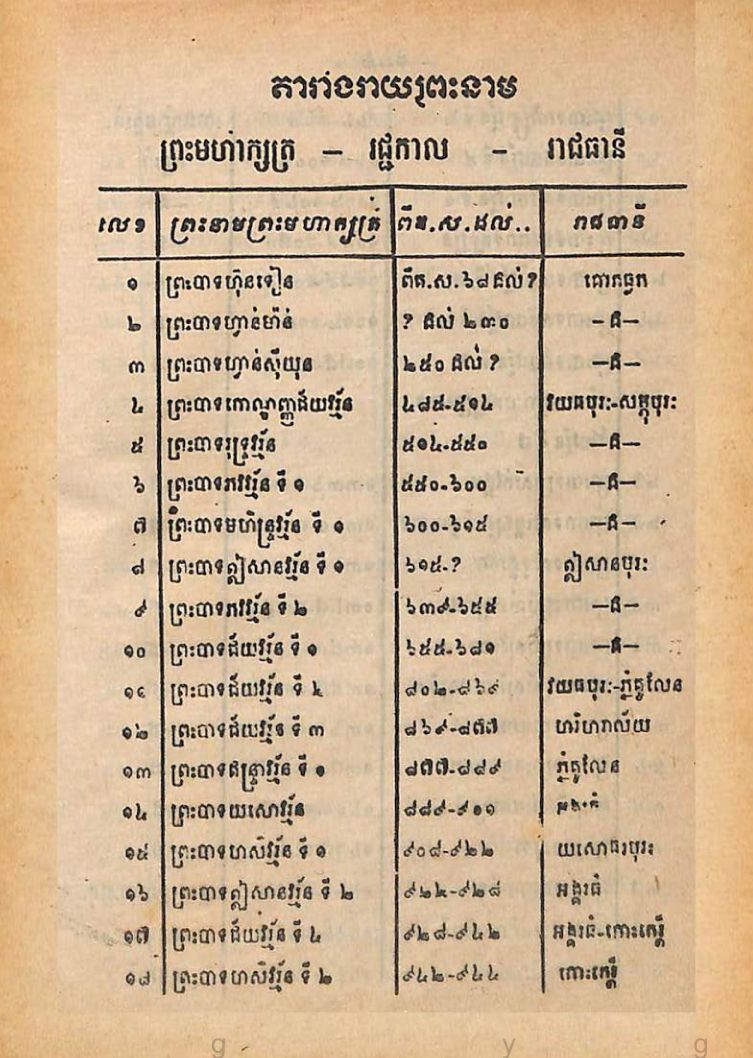 តារាងរាយព្រះនាម
ព្រះមហាក្សត្រ – រជ្ជកាល – រាជធានី
លេខ ព្រះនាមព្រះមហាក្សត្រ ពីគ.ស.ដល់.. រាជធានី
១ ព្រះបាទហ៊ុនទៀន ពីគ.ស.៦៨ដល់? គោកធ្លក
២ ព្រះបាទហ្វាន់ម៉ាន់ ? ដល់ ២៣០ –ដ–
៣ ព្រះបាទហ្វាន់ស៊ីយុន ២៥០ ដល់ ? –ដ–
៤ ព្រះបាទកោណ្ឌញ្ញជ័យវរ្ម័ន ៤៨៥-៥១៤ វយធបុរៈ-សត្កបុរៈ
៥ ព្រះបាទរុទ្រវរ្ម័ន ៥១៤-៥៥០ –ដ–
៦ ព្រះបាទភវវរ្ម័ន ទី ១ ៥៥០-៦០០ –ដ–
៧ ព្រះបាទមហិន្ទ្រវរ្ម័ន ទី ១ ៦០០-៦១៥ –ដ–
៨ ព្រះបាទឦសានវរ្ម័ន ទី ១ ៦១៥-? ឦសានបុរៈ
៩ ព្រះបាទភវវរ្ម័ន ទី ២ ៦៣៩-៦៥៥ –ដ–
១០ ព្រះបាទជ័យវរ្ម័ន ទី ១ ៦៥៥-៦៨១ –ដ–
១៤ ព្រះបាទជ័យវរ្ម័ន ទី ៤ ៨០២-៨៦៩ វយធបុរៈ-ភ្នំគូលែន
១២ ព្រះបាទជ័យវរ្ម័ន ទី ៣ ៨៦៩-៨៧៧ ហរិហរាល័យ
១៣ ព្រះបាទឥន្ទ្រាវរ្ម័ន ទី ១ ៨៧៧-៨៨៩ ភ្នំគូលែន
១៤ ព្រះបាទយសោវរ្ម័ន ៨៨៩-៩១១
១៥ ព្រះបាទហសិវរ្ម័ន ទី ១ ៩០៨-៩២២ យសោធរបុរៈ
១៦ ព្រះបាទឦសានវរ្ម័ន ទី ២ ៩២២-៩២៨ អង្គរធំ
១៧ ព្រះបាទជ័យវរ្ម័ន ទី ៤ ៩២៨-៩៤២ អង្គរធំ-កោះកេរ្តិ៍
១៨ ព្រះបាទហសិវរ្ម័ន ទី ២ ៩៤២-៩៤៤ កោះកេរ្តិ៍
g y g